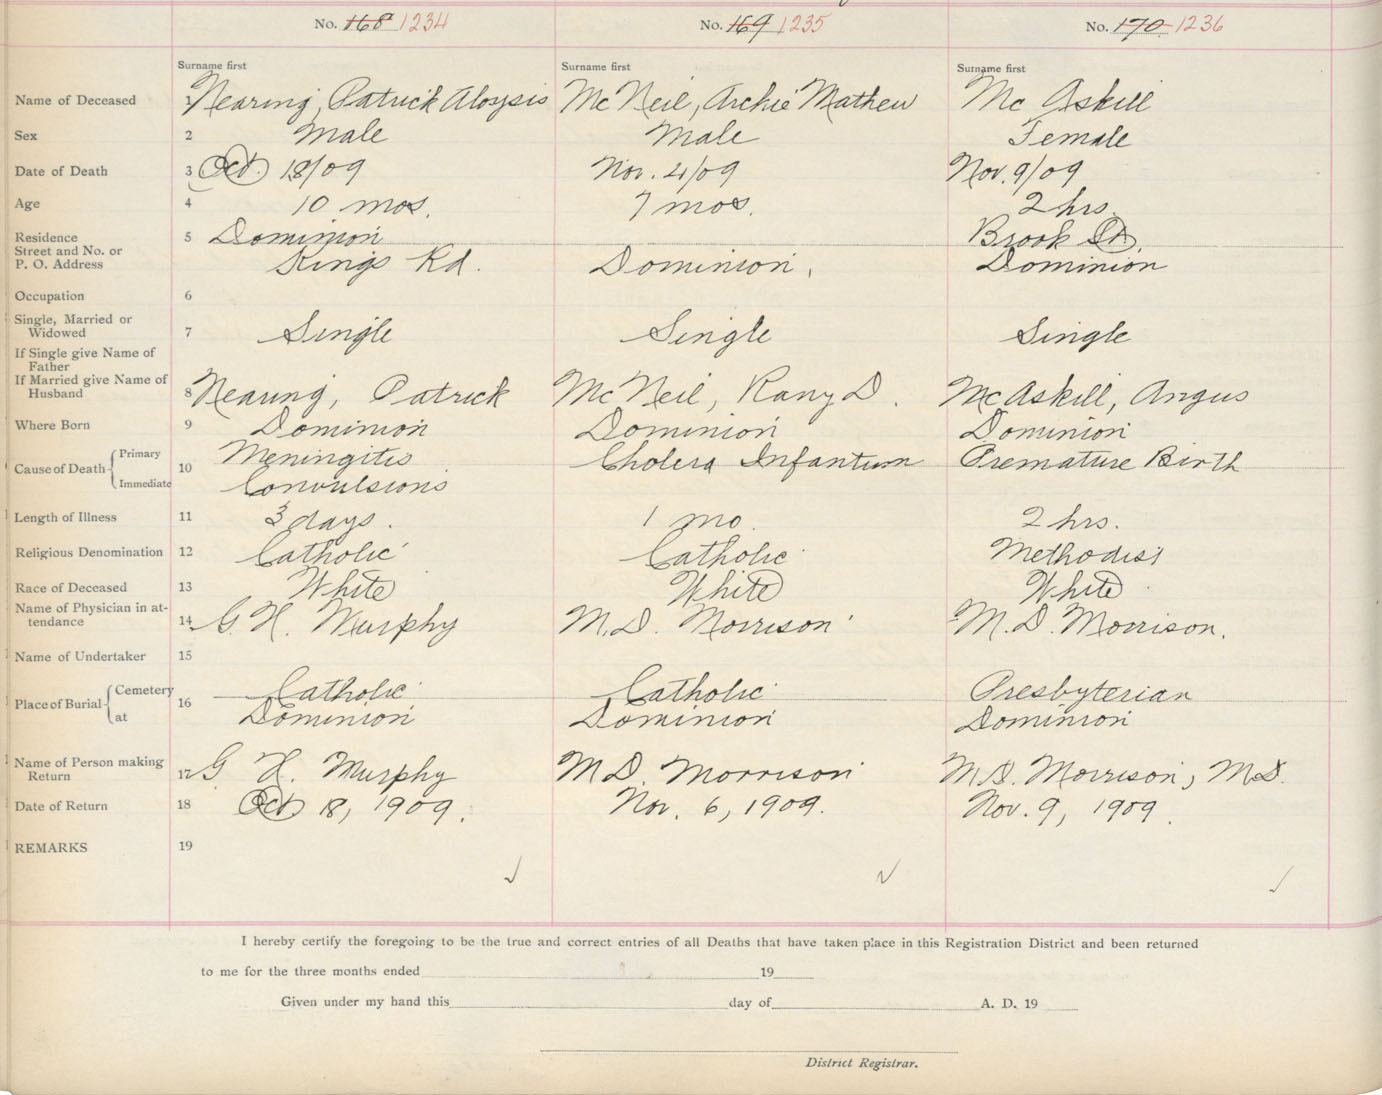 No. 168 1234 No. 169 1235 No. 170 1236
Surname first Surname first Surname first
Name of Deceased 1 Nearing, Patrick Aloysis McNeil, Archie Mathew McAskill
Sex 2 Male Male Female
Date of Death 3 Oct. 18/09 Nov. 4/09 Nov. 9/09
Age 4 10 mos. 7 mos. 2 hrs.
Residence 5 Dominion Brook St.
Street and No. or
P. O. Address Kings Rd. Dominion, Dominion
Occupation 6
Single, Married or
Widowed 7 Single Single Single
If Single give Name of
Father
If Married give Name of
Husband 8 Nearing, Patrick McNeil, Rany D. McAskill, Angus
Where Born 9 Dominion Dominion Dominion
Cause of Death 10 Primary Meningitis Cholera Infantum Premature Birth
Immediate Convulsions
Length of Illness 11 3 days. 1 mo. 2 hrs.
Religious Denomination 12 Catholic Catholic Methodist
Race of Deceased 13 White White White
Name of Physician in at-
tendance 14 G. H. Murphy M.D. Morrison M.D. Morrison.
Name of Undertaker 15
Place of Burial 16 Cemetery Catholic Catholic Presbyterian
at Dominion Dominion Dominion
Name of Person making
Return 17 G H. Murphy M D. Morrison M.D. Morrison, M.D.
Date of Return 18 Oct. 18, 1909. Nov. 6, 1909. Nov. 9, 1909.
REMARKS 19
I hereby certify the foregoing to be the true and correct entries of all Deaths that have taken place in this Registration District and been returned
to me for the three months ended 19
Given under my hand this day of A. D. 19
District Registrar.